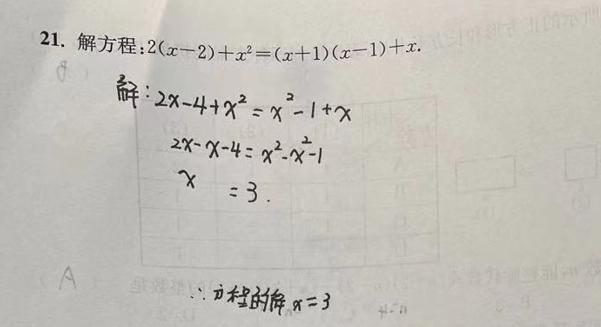 21. 解方程:2(x-2)+x²=(x+1)(x-1)+x.
解:2x-4+x²=x²-1+x
2x-x-4=x²-x²-1
x =3.
∴方程的解x=3